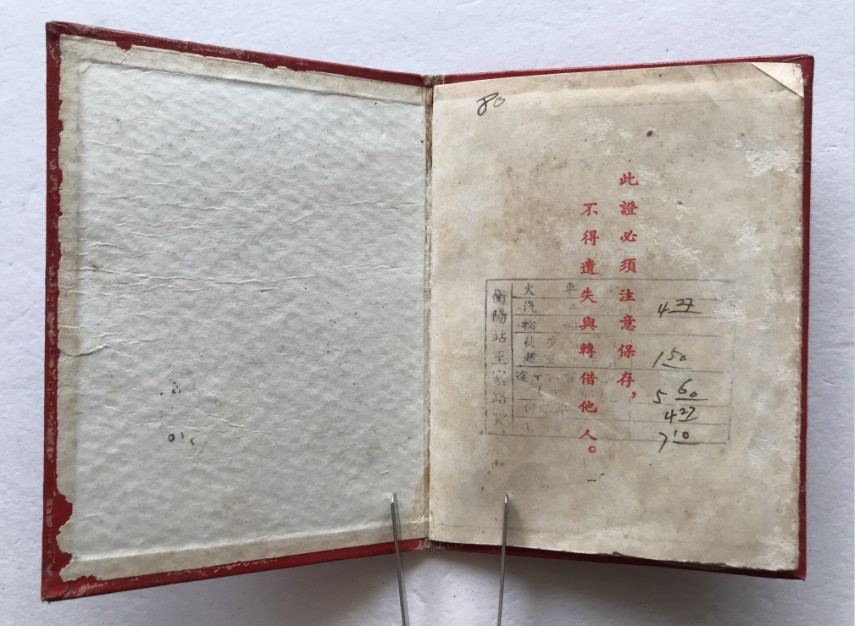 80
此證必須注意保存，
不得遺失與轉借他人。
衡陽站至家路費
火 車
汽
輪
徒 步
途
4 27
1 50
5 60
4 27
7 10